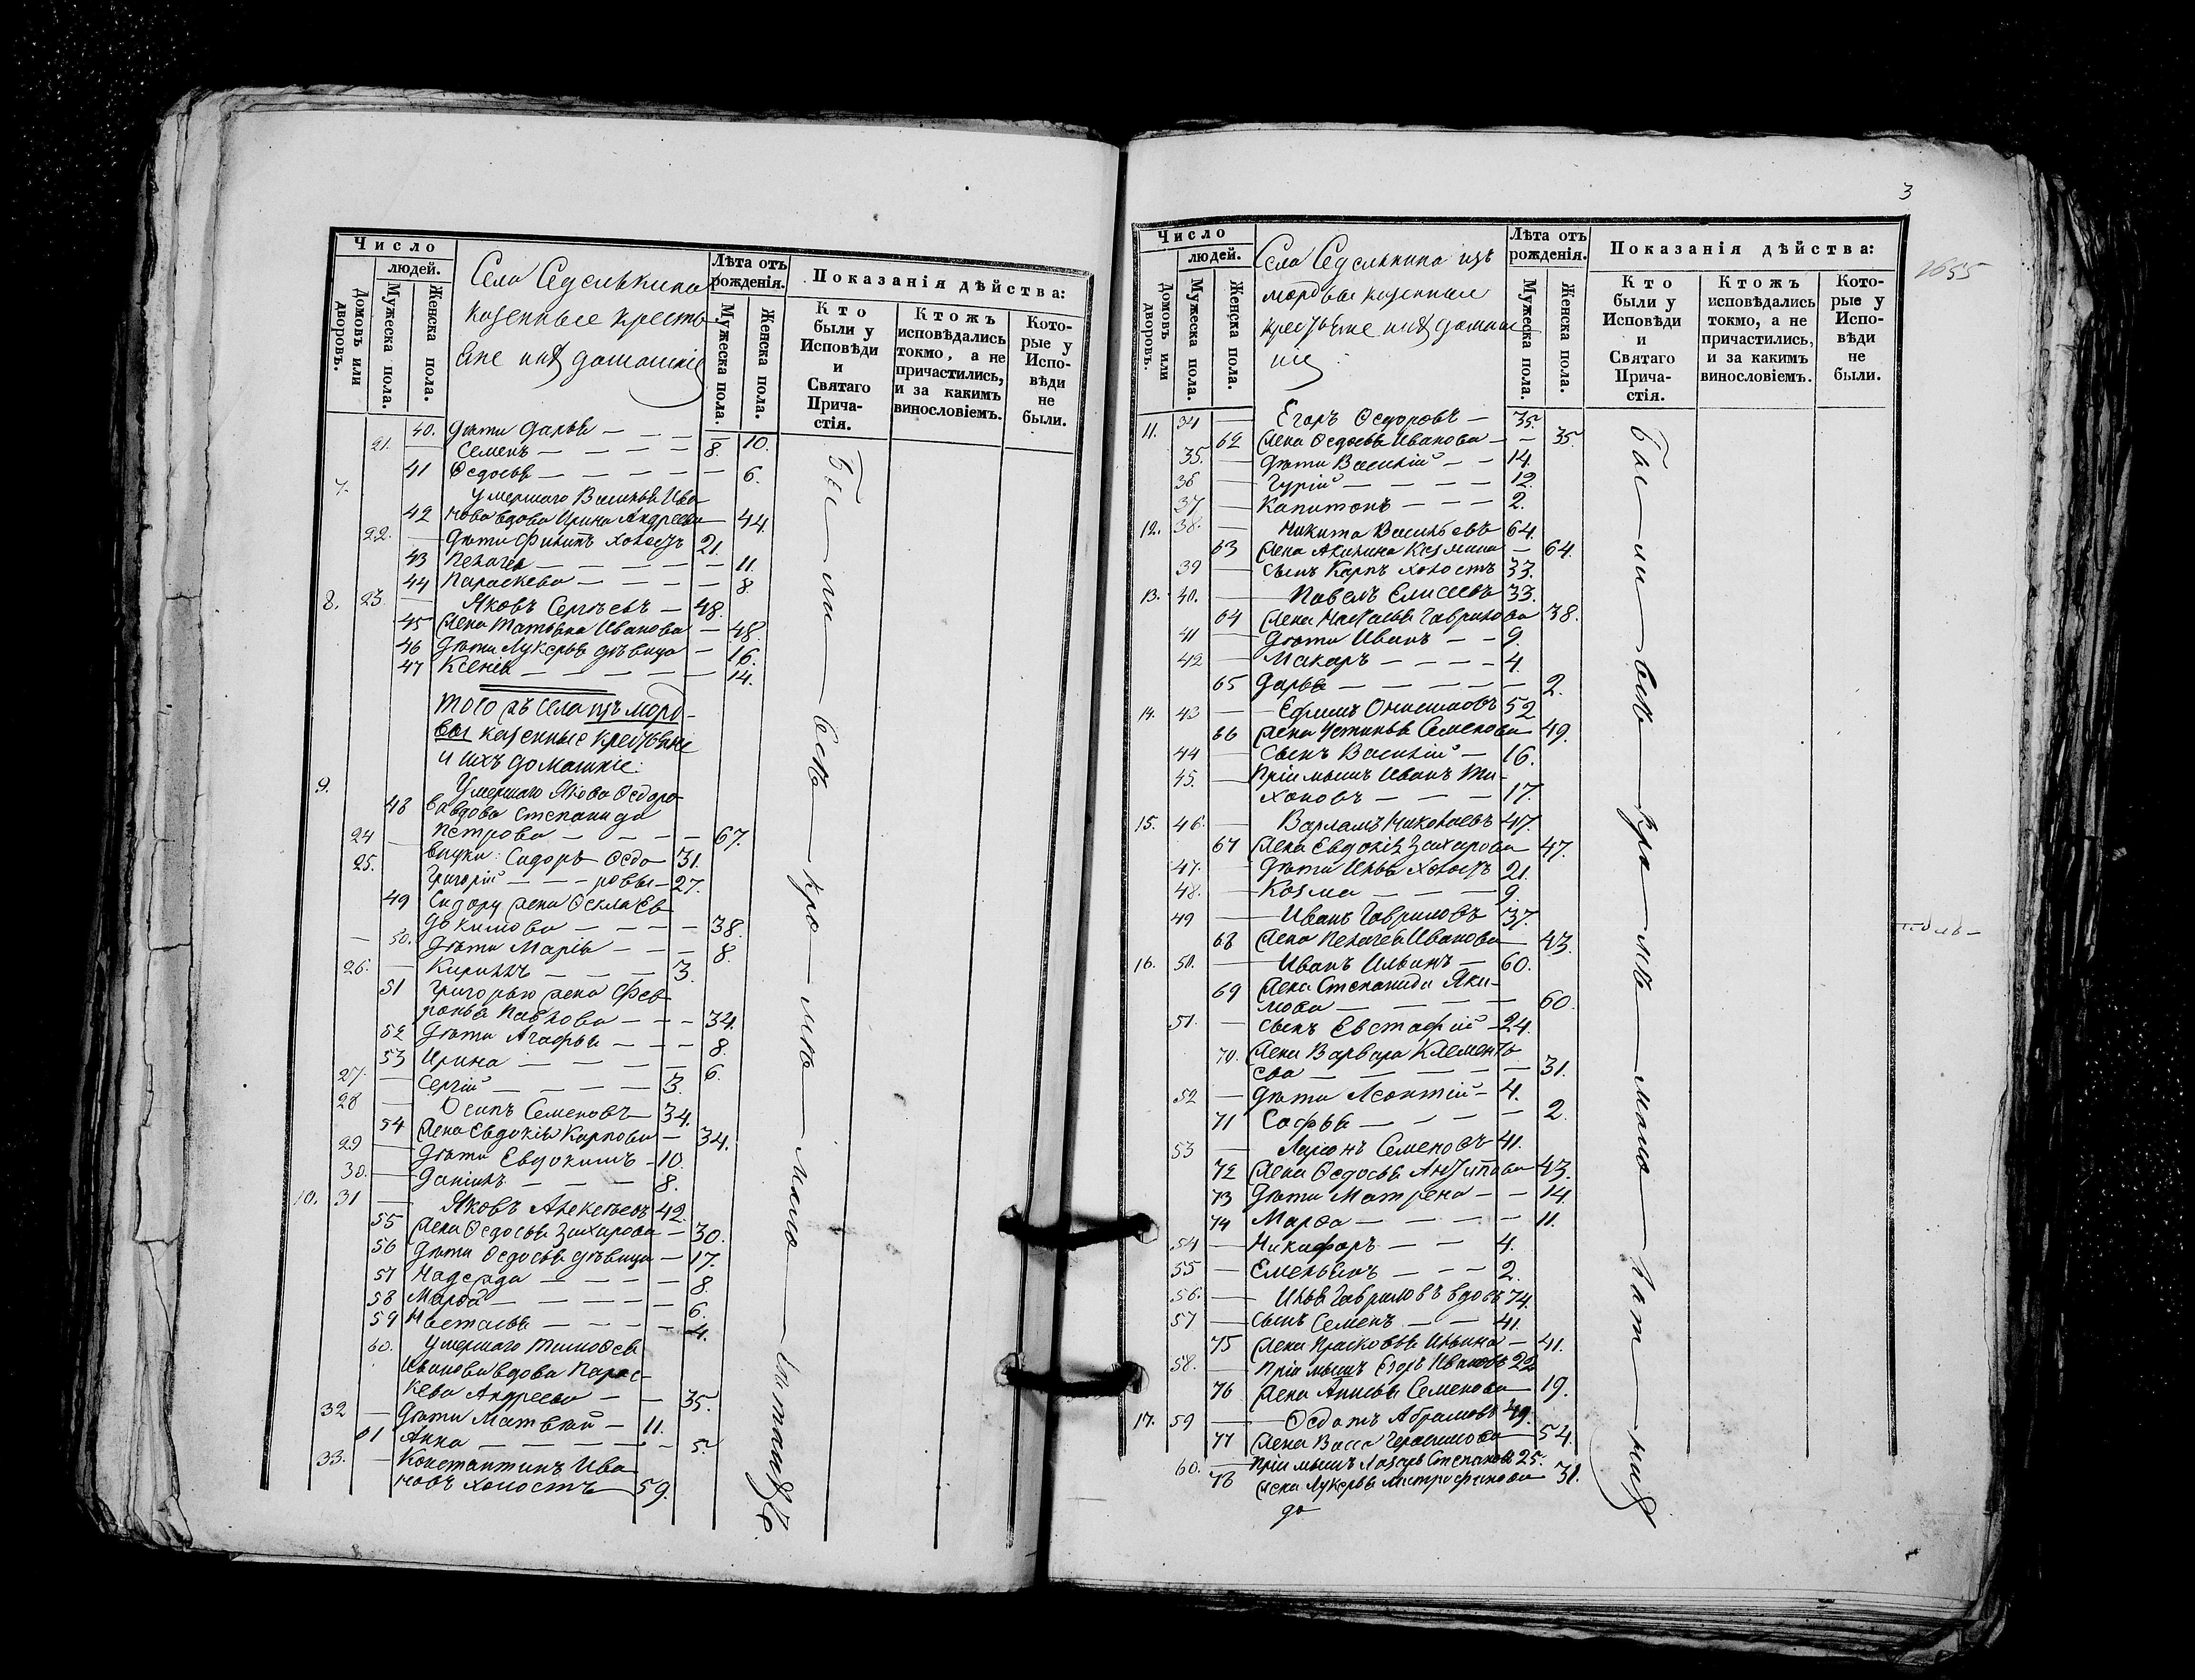 Число
людей.
Домовъ или дворовъ.
Мужеска пола.
Женска пола.
Села Седелькина
казенные кресть-
яне ихъ домашніе
Лѣта отъ рожденія.
Мужеска пола.
Женска пола.
Показанія дѣйства:
Кто были у Исповѣди и Святаго Причастія.
Ктожъ исповѣдались токмо, а не причастились, и за какимъ винословіемъ.
Которые у Исповѣди не были.
40. дѣти Дарья — 10.
21. Семенъ — 8.
41 Ѳедосья — 6.
7. умершаго Василья Ива-
42 нова вдова Ирина Андреева — 44.
22. дѣти Филипъ холостъ 21.
43 Пелагея — 11.
44 Параскева — 8.
8. 23. Яковъ Сергѣевъ — 48.
45 жена Татьяна Иванова — 48.
46 дѣти Лукерья дѣвица — 16.
47 Ксенія — 14.
Того жъ села изъ морд-
вы казенные крестьяне
и ихъ домашніе:
9. Умершаго Якова Ѳедоро-
48 ва вдова Степанида
Петрова — 67.
24 внуки: Сидоръ Ѳедо- 31.
25. Григорій — ровы — 27.
49 Сидору жена Ѳекла Ев-
докимова — 38.
50. дѣти Марія — 8.
26. Кирилъ — 3.
51 Григорью жена Фев-
ронья Павлова — 34.
52 дѣти Агафья — 8.
53 Ирина — 6.
27. Сергій — 3.
28 Осипъ Семеновъ — 34.
54 жена Евдокія Карпова — 34.
29 дѣти Евдокимъ — 10.
30. Данилъ — 8.
10. 31 Яковъ Алексѣевъ 42.
55 жена Ѳедосья Захарова — 30.
56 дѣти Ѳедосья дѣвица — 17.
57 Надежда — 8.
58 Марѳа — 6.
59 Настасья — 4.
60. умершаго Тимоѳея
Иванова вдова Парас-
кева Андреева — 35.
32 дѣти Матвѣй — 11.
61 Анна — 5.
33. Константинъ Ива-
новъ холостъ 59.
Бы — ли — всѣ — кро — мѣ — мало —
3
2655
Число
людей.
Домовъ или дворовъ.
Мужеска пола.
Женска пола.
Села Седелькина изъ
мордвы казенные
крестьяне ихъ домаш-
ніе:
Лѣта отъ рожденія.
Мужеска пола.
Женска пола.
Показанія дѣйства:
Кто были у Исповѣди и Святаго Причастія.
Ктожъ исповѣдались токмо, а не причастились, и за какимъ винословіемъ.
Которые у Исповѣди не были.
11. 34 Егоръ Ѳедоровъ — 35.
62 жена Ѳедосья Иванова — 35.
35. дѣти Василій — 14.
36 Гурій — 12.
37 Капитонъ — 2.
12. 38. Никита Васильевъ 64.
63 жена Акилина Козмина — 64.
39 сынъ Карпъ холостъ 33.
13. 40. Павелъ Елисеевъ 33.
64 жена Настасья Гаврилова 38.
41 дѣти Иванъ — 9.
42 Макаръ — 4.
65 Дарья — 2.
14. 43 Ефимъ Онисимовъ 52
66 жена Устинья Семенова 49.
44 сынъ Василій — 16.
45. пріимышъ Иванъ Ти-
хоновъ — 17.
15. 46. Варламъ Николаевъ 47.
67 жена Евдокія Захарова 47.
47. дѣти Илья холостъ 21.
48. Козма — 9.
49 Иванъ Гавриловъ 37.
68 жена Пелагея Иванова — 43.
16. 50. Иванъ Ильинъ — 60.
69 жена Степанида Яки-
мова — 60.
51. сынъ Евстафій — 24.
70. жена Варвара Клементь-
ева — 31.
52 дѣти Леонтій — 4.
71 Софья — 2.
53 Ларіонъ Семеновъ 41.
72 жена Ѳедосья Антипова 43.
73 дѣти Матрена — 14.
74 Марѳа — 11.
54 Никифоръ — 4.
55 Емельянъ — 2.
56. Илья Гавриловъ вдовъ 74.
57 сынъ Семенъ — 41.
75 жена Прасковья Ильина — 41.
58. пріимышъ Егоръ Ивановъ 22
76 жена Анисья Семенова — 19.
17. 59 Ѳедотъ Абрамовъ 49.
77 жена Васса Герасимова — 54.
60. пріимышъ Лазарь Степановъ 25.
78 жена Лукерья Митрофанова 31.
до
Бы — ли — всѣ — кро — мѣ — мало — лѣт — нихъ